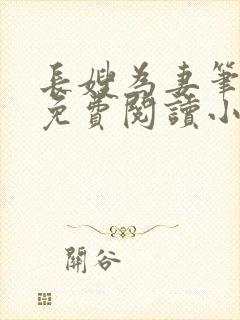 長嫂為妻筆
免費閱讀小
開谷